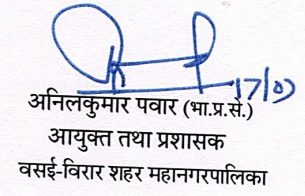 17/07
अनिलकुमार पवार (भा.प्र.से.)
आयुक्त तथा प्रशासक
वसई-विरार शहर महानगरपालिका